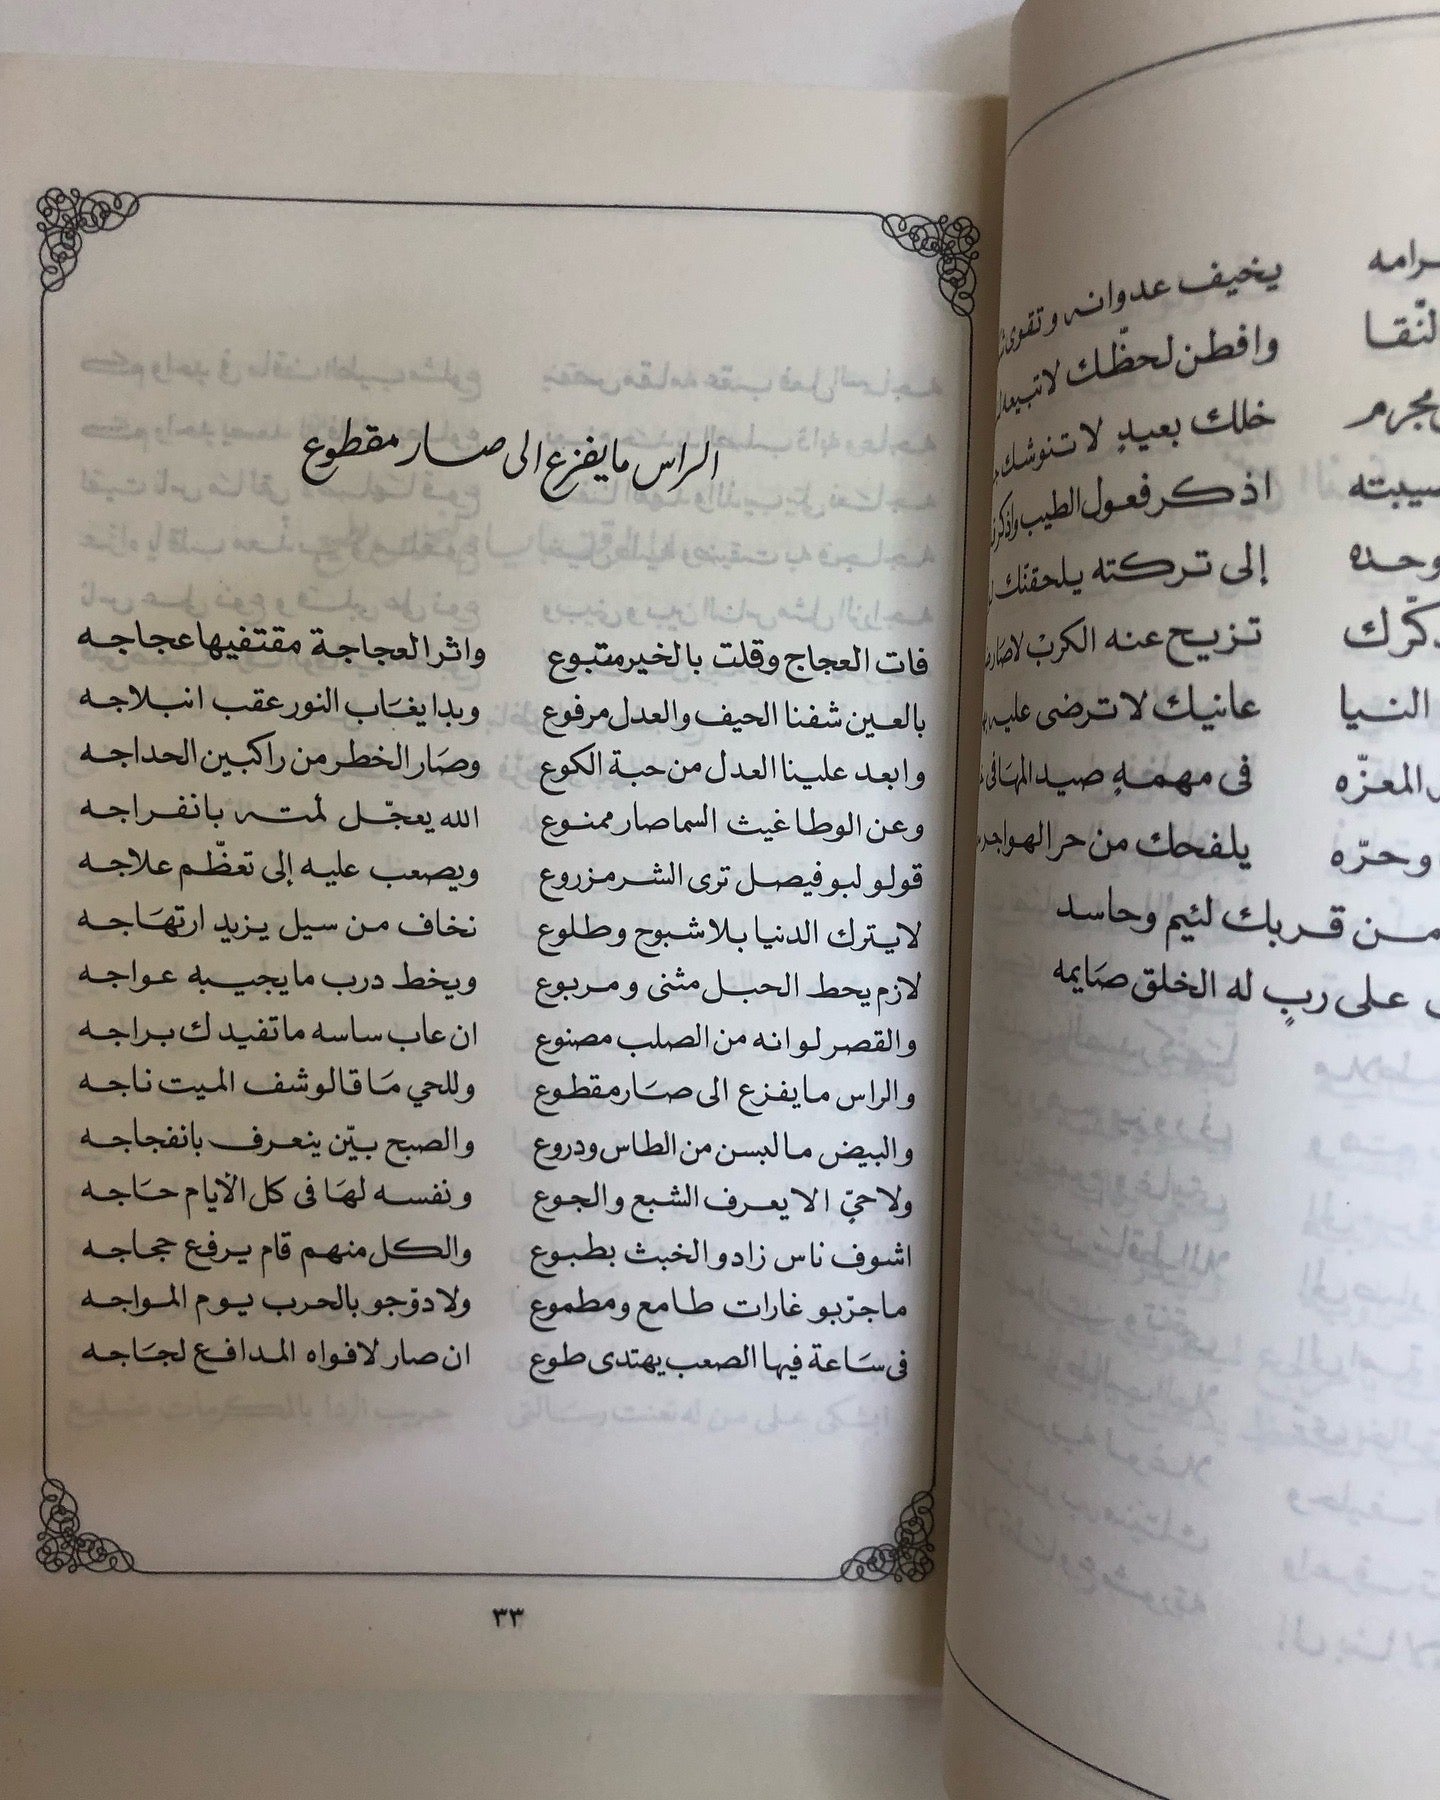 الراس ما يفزع الى صار مقطوع
فات العجاج وقلت بالخير متبوع واثر العجاجة مقتفيها عجاجه
بالعين شفنا الحيف والعدل مرفوع وبدا يغَاب النور عقب انبلاجه
وابعد علينا العدل من حبة الكوع وصَار الخطر من راكبين الحداجه
وعن الوطا غيث السما صار ممنوع الله يعجّل لمته بانفراجه
قولو لبو فيصل ترى الشر مزروع ويصعب عليه إلى تعظّم علاجه
لايترك الدنيا بلا شبوح وطلوع نخاف من سيل يزيد ارتهَاجه
لازم يحط الحبل مثنى ومربوع ويخط درب ما يجيبه عواجه
والقصر لو انه من الصلب مصنوع ان عاب ساسه ما تفيدك براجه
والراس ما يفزع الى صَار مقطوع وللحي مَا قالو شف الميت ناجه
والبيض ما لبسن من الطاس ودروع والصبح بيّن ينعرف بانفجاجه
ولا حيّ الا يعرف الشبع والجوع ونفسه لهَا في كل الأيام حَاجه
اشوف ناس زادو الخبث بطبوع والكل منهم قام يرفع حجاجه
ما جرّبو غارات طامع ومطموع ولا دوّجو بالحرب يوم المواجه
في سَاعة فيها الصعب يهتدى طوع ان صار لافواه المدافع لجَاجه
٣٣
يخيف عدوانه وتقوى
وافطن لحظّك لا تبيعه
خلك بعيدٍ لا تنوشك
اذكر فعول الطيب واذكر
إلى تركته يلحقنّك
تزيح عنه الكربْ لا صَار
عانيك لا ترضى عليه
المعزّه في مهمهٍ صيد المهَا في
وحرّه يلفحك من حر الهواجر
من قربك لئيم وحاسد
على ربٍ له الخلق صَايمه